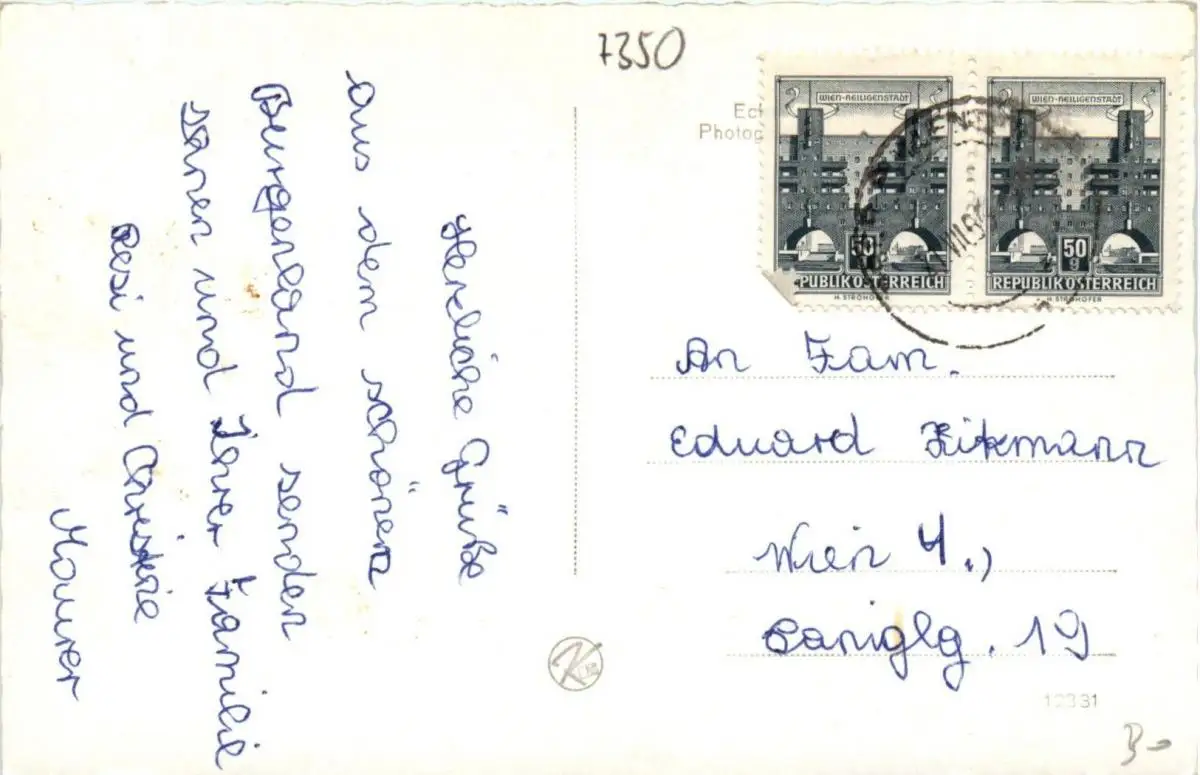 7350
Herzliche Grüße
aus dem schönen
Burgenland senden
Ihnen und Ihrer Familie
Resi und Christine
Maurer
Ech
Photog
WIEN-HEILIGENSTADT
50
PUBLIK ÖSTERREICH
H. STROHOFER
WIEN-HEILIGENSTADT
50
g
REPUBLIK ÖSTERREICH
H. STROHOFER
An Fam.
Eduard
Wien 4.,
Paniglg. 19
K
12331